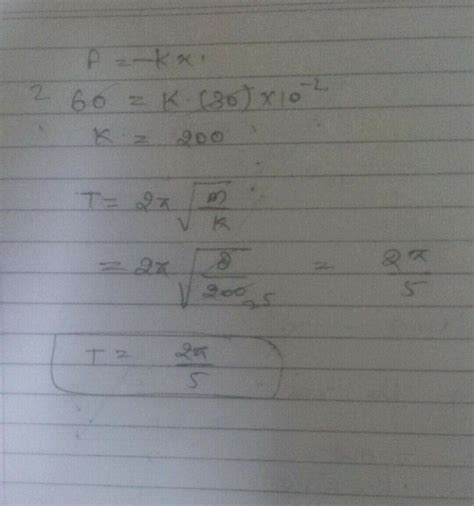 F = -Kx.
60 = K·(30)×10⁻²
K = 200
T = 2π √(m/K)
= 2π √(8/200 25) = 2π/5
T = 2π/5